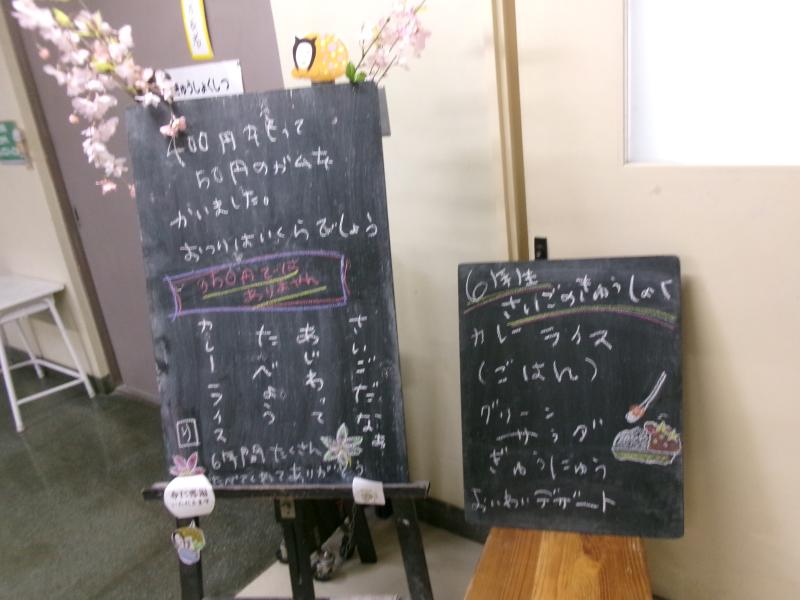 きゅうしょくしつ
400円もって
50円のガムを
かいました。
おつりはいくらでしょう
350円では
ありません
さいごだなぁ
あじわって
たべよう
カレーライス
り
6年間たくさん
たべてくれてありがとう
いただきます
6年生
さいごのきゅうしょく
カレーライス
(ごはん)
グリーン
サラダ
ぎゅうにゅう
おいわいデザート